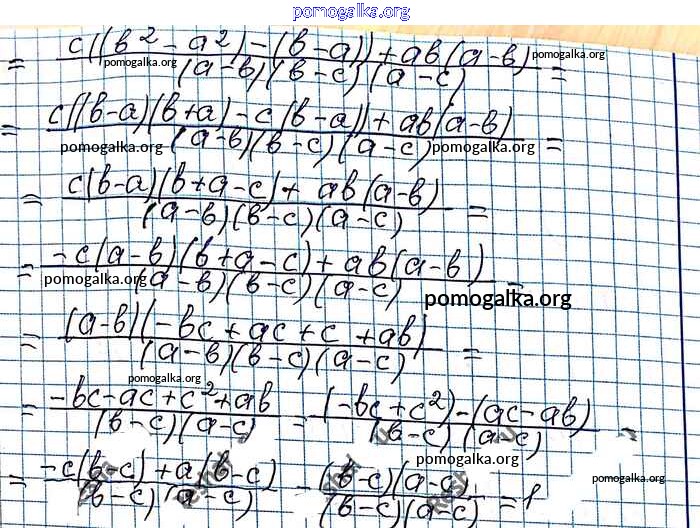 pomogalka.org
= c((b² - a²) - (b-a)) + ab(a-b) / (a-b)(b-c)(a-c) =
pomogalka.org pomogalka.org
= c((b-a)(b+a) - c(b-a)) + ab(a-b) / (a-b)(b-c)(a-c) =
pomogalka.org pomogalka.org
= c(b-a)(b+a-c) + ab(a-b) / (a-b)(b-c)(a-c) =
= -c(a-b)(b+a-c) + ab(a-b) / (a-b)(b-c)(a-c) =
pomogalka.org pomogalka.org
= (a-b)(-bc + ac + c + ab) / (a-b)(b-c)(a-c) =
pomogalka.org
= -bc-ac+c²+ab / (b-c)(a-c) = (-bc+c²)-(ac-ab) / (b-c)(a-c) =
pomogalka.org
= -c(b-c)+a(b-c) / (b-c)(a-c) = (b-c)(a-c) / (b-c)(a-c) = 1
pomogalka.org